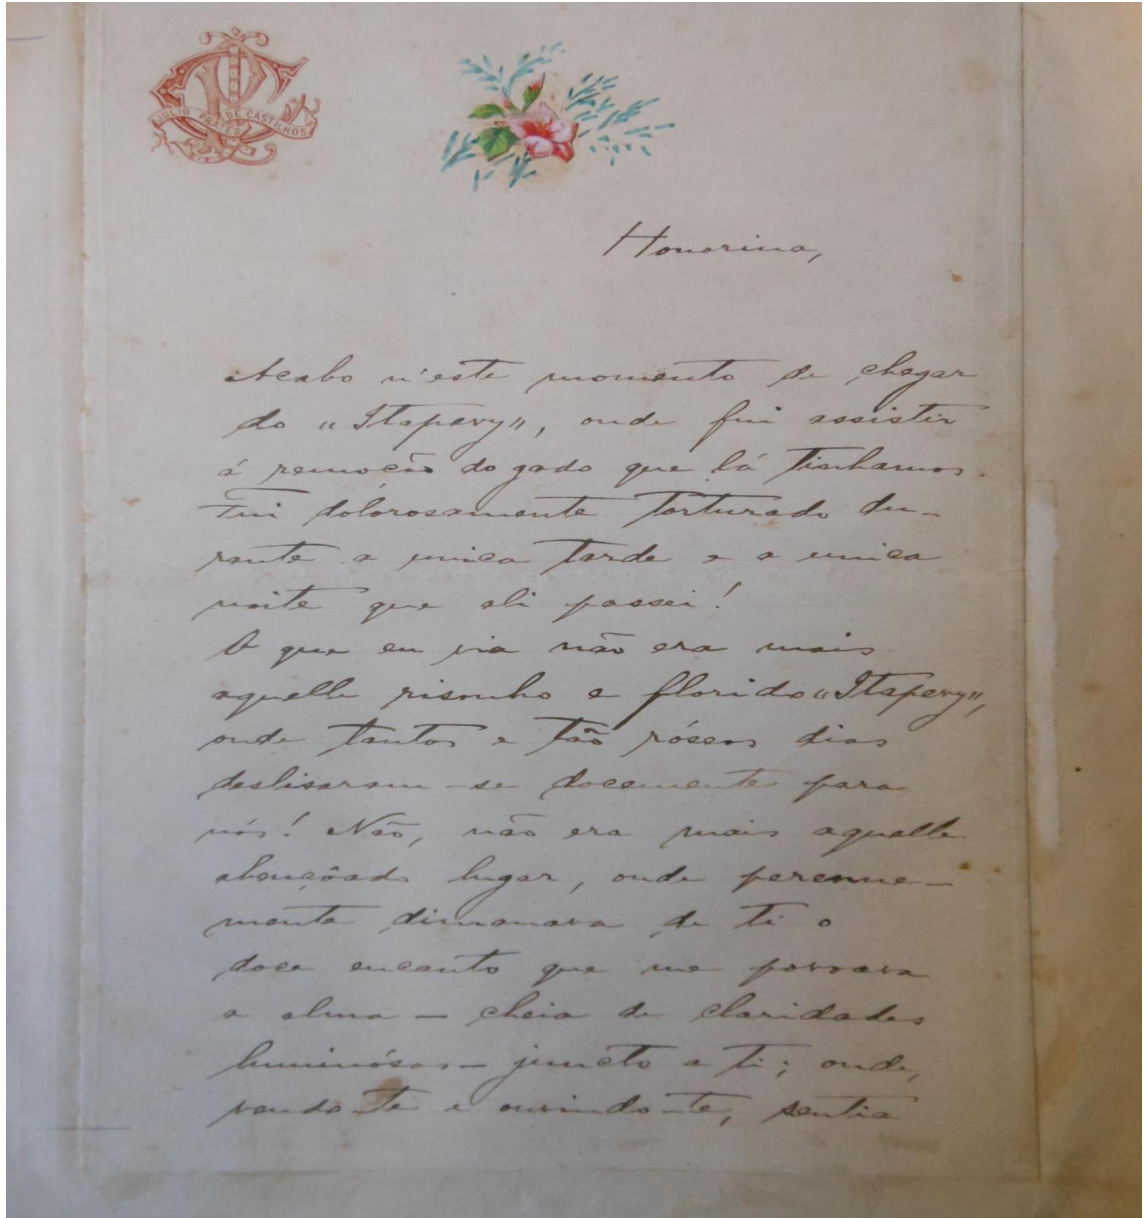 JULIO PRATES DE CASTILHOS
Honorina,
Acabo n'este momento de chegar
do "Itapevy", onde fui assistir
á remoção do gado que lá tinhamos.
Fui dolorosamente torturado du-
rante a unica tarde e a unica
noite que ali passei!
O que eu via não era mais
aquelle risonho e florido "Itapevy",
onde tantos e tão róseos dias
deslisaram-se docemente para
nós! Não, não era mais aquelle
abençôado lugar, onde perenne-
mente dimanava de ti o
doce encanto que me povoava
a alma - cheia de claridades
luminósas - juncto a ti; onde,
vendo-te e ouvindo-te, sentia